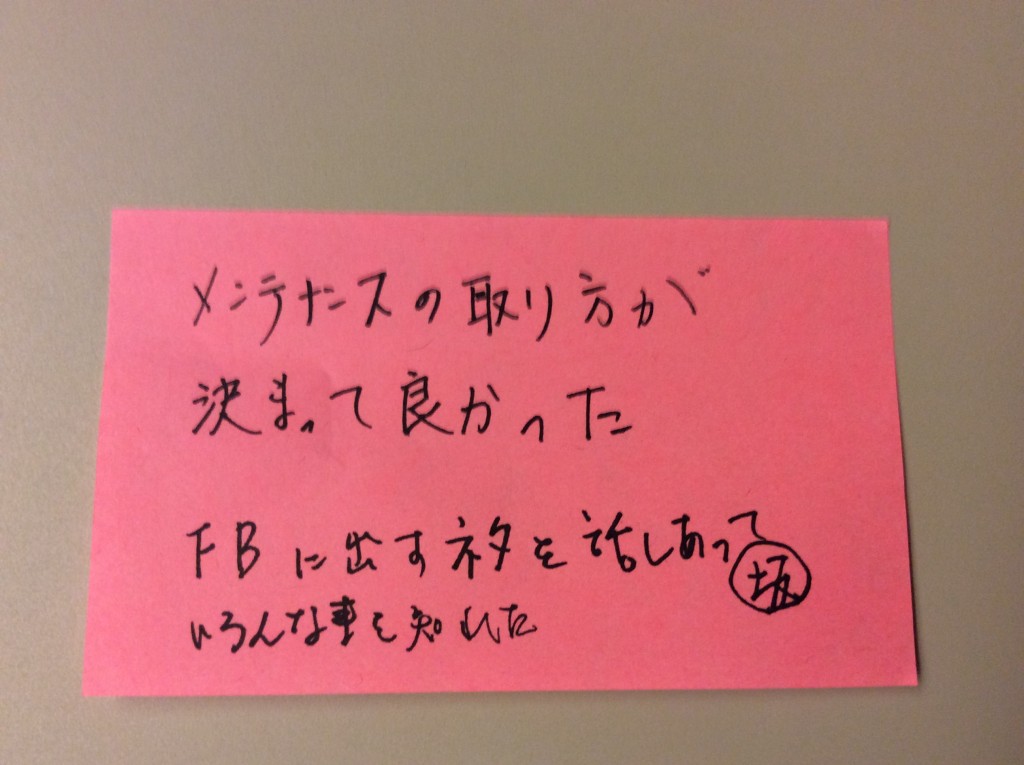 メンテナンスの取り方が
決まって良かった
FBに出すネタを話しあって
いろんな事を知れた
坂